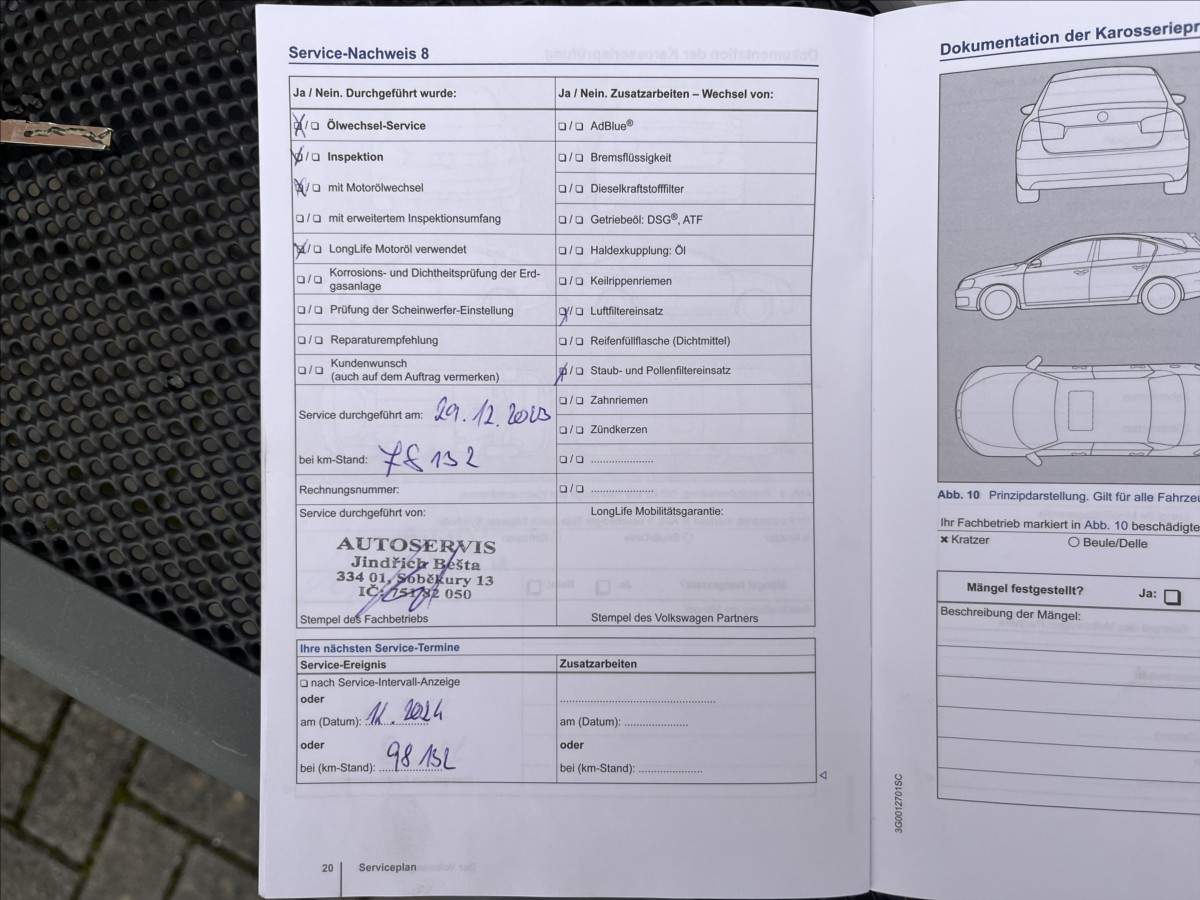 Service-Nachweis 8
Ja / Nein. Durchgeführt wurde:
Ja / Nein. Zusatzarbeiten – Wechsel von:
❏/❏ Ölwechsel-Service
❏/❏ AdBlue®
❏/❏ Inspektion
❏/❏ Bremsflüssigkeit
❏/❏ mit Motorölwechsel
❏/❏ Dieselkraftstofffilter
❏/❏ mit erweitertem Inspektionsumfang
❏/❏ Getriebeöl: DSG®, ATF
❏/❏ LongLife Motoröl verwendet
❏/❏ Haldexkupplung: Öl
❏/❏ Korrosions- und Dichtheitsprüfung der Erd-
gasanlage
❏/❏ Keilrippenriemen
❏/❏ Prüfung der Scheinwerfer-Einstellung
❏/❏ Luftfiltereinsatz
❏/❏ Reparaturempfehlung
❏/❏ Reifenfüllflasche (Dichtmittel)
❏/❏ Kundenwunsch
(auch auf dem Auftrag vermerken)
❏/❏ Staub- und Pollenfiltereinsatz
❏/❏ Zahnriemen
Service durchgeführt am: 29.12.2023
❏/❏ Zündkerzen
bei km-Stand: 78 132
❏/❏ .....................
Rechnungsnummer:
❏/❏ .....................
Service durchgeführt von:
LongLife Mobilitätsgarantie:
AUTOSERVIS
Jindřich Bešta
334 01, Soběkury 13
IČ: 75182 050
Stempel des Fachbetriebs
Stempel des Volkswagen Partners
Ihre nächsten Service-Termine
Service-Ereignis
Zusatzarbeiten
❏ nach Service-Intervall-Anzeige
oder
am (Datum): 12. 2024
am (Datum): ...................
oder
oder
bei (km-Stand): 98 132
bei (km-Stand): ...................
20
Serviceplan
Dokumentation der Karosseriepr
Abb. 10 Prinzipdarstellung. Gilt für alle Fahrzeu
Ihr Fachbetrieb markiert in Abb. 10 beschädigte
✖ Kratzer
○ Beule/Delle
Mängel festgestellt?
Ja: ❏
Beschreibung der Mängel:
3G0012701SC